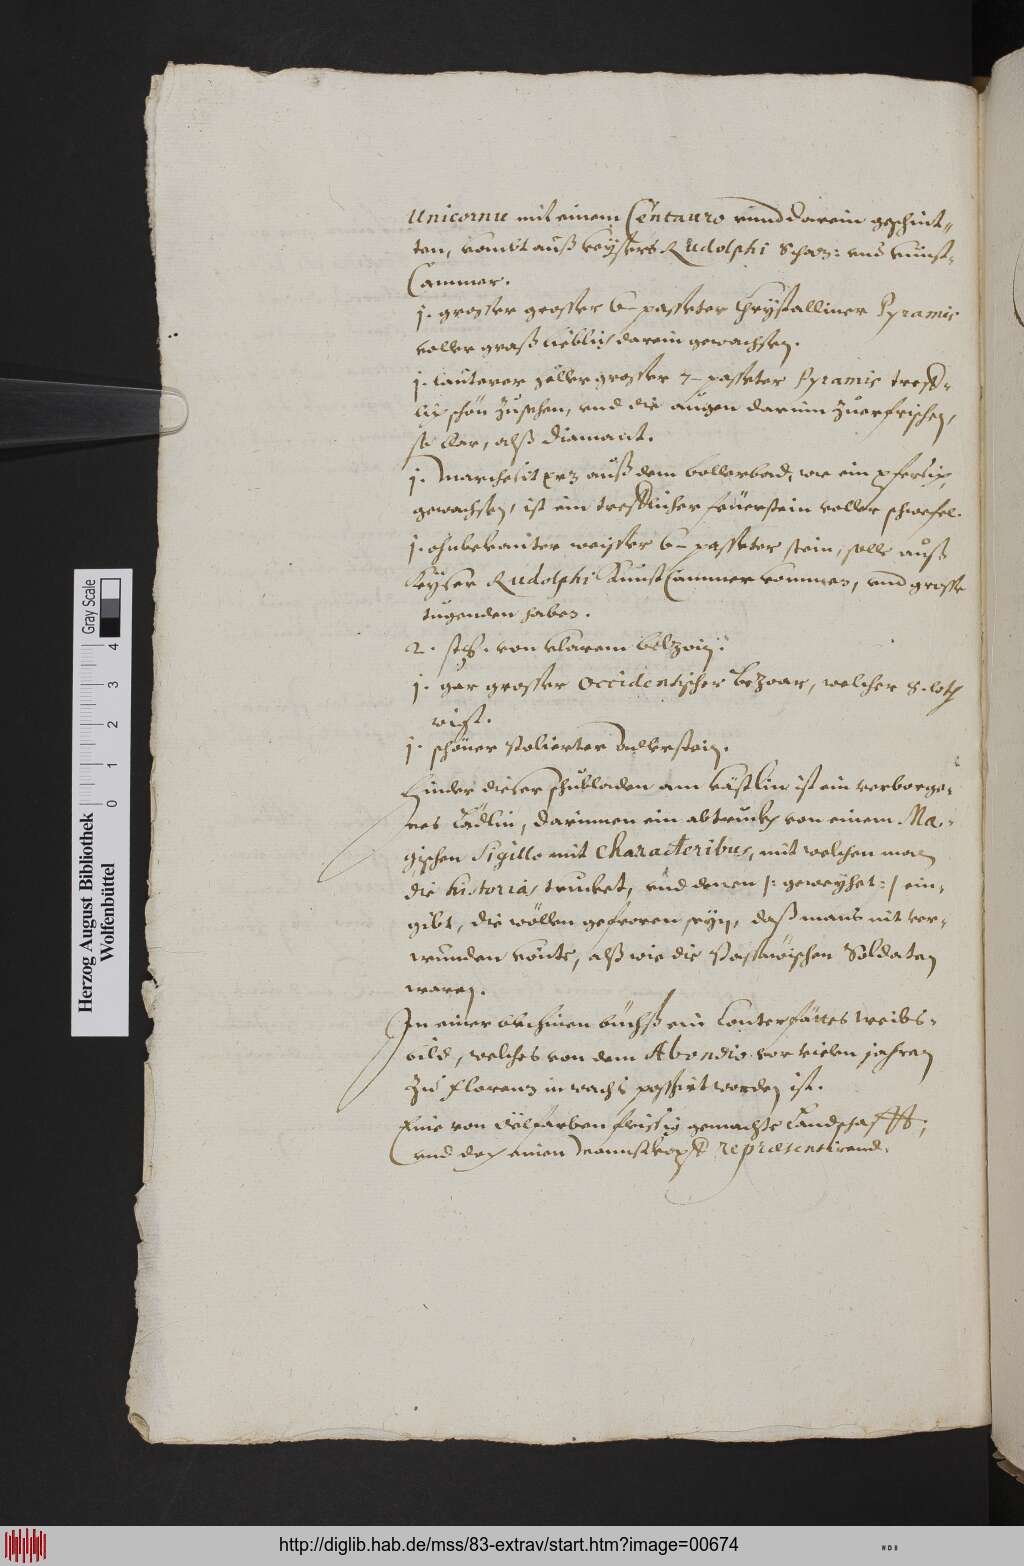 Unicornu mit einem Centauro rund darein geschnit-
ten, kombt auß Keysers Rudolphi Schaz: vnd Kunst-
Cammer.
j. grosser 6-passeter Chrystalliner Pyramis
voller graß lieblich darein gewachsen.
j. lauterer heller grosser 7-passeter Pyramis treff-
lich schön zusehen, vnd die augen darinn zuerfrischen,
so klar, alß Diamant.
j. Marchesit erz auß dem bollerbad, wie ein pfersich
gewachsen, ist ein trefflicher feüerstein voller schwefel.
j. ohnbekanter weisser 6-passeter stein, solle auß
Keyser Rudolphi Kunst Cammer kommen, vnd grosse
tugenden haben.
2. stck. von klarem
j. gar grosser Occidentischer Bezoar, welcher 8. loth
wigt.
j. schöner polierter Adlerstein.
Hinder dieser schubladen am kästlin ist ein verborge-
nes Lädlin, darinnen ein abtruckh von einem Ma-
gischen Sigillo mit Characteribus, mit welchen man
die historias trucket, vnd denen |: geweyhet :| ein-
gibt, die wöllen gefroren seyn, daß mans nit ver-
wunden könte, alß wie die Passawischen Soldaten
waren.
In einer büchß ein Conterfättes Weibs-
bild, welches von dem Abondio vor vielen jahren
zu Florenz in wachs possirt worden ist.
Eine von Oelfarben fleissig gemachte Landschafft,
vnd doch einen Mannskopff repræsentirend.
Herzog August Bibliothek
Wolfenbüttel
0 1 2 3 4
Gray Scale
http://diglib.hab.de/mss/83-extrav/start.htm?image=00674